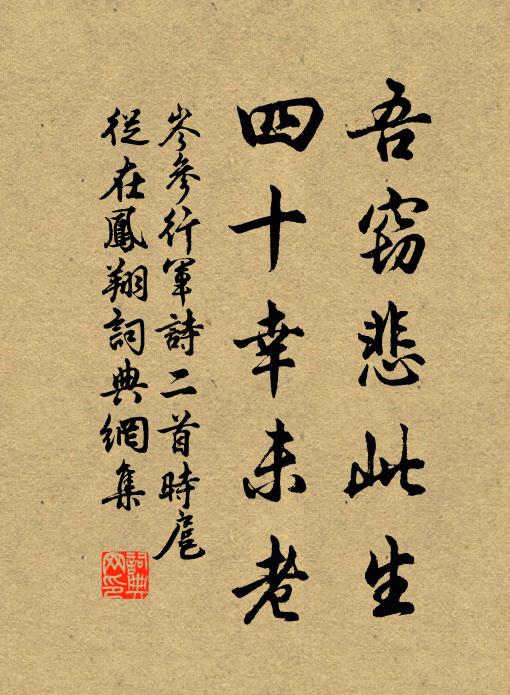 吾窃悲此生
四十幸未老
岑參行軍詩二首時扈
從在鳳翔詞典網集
詞典
網印